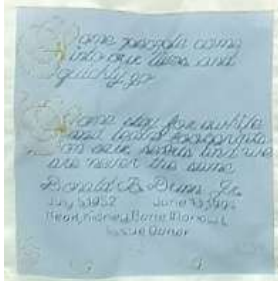 Some people come
into our lives and
quickly go
Some stay for awhile
and leave footprints
on our hearts and we
are never the same
Donald B. Dunn Jr.
July 5 1952 June
Heart, Kidney, Bone Marrow &
Tissue Donor